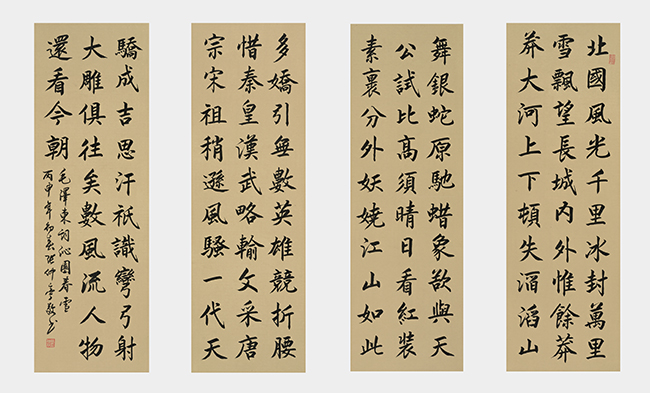 北國風光千里冰封萬里
雪飄望長城内外惟餘莽
莽大河上下頓失滔滔山
舞銀蛇原馳蜡象欲與天
公試比高須晴日看紅装
素裹分外妖嬈江山如此
多嬌引無數英雄競折腰
惜秦皇漢武略輸文采唐
宗宋祖稍遜風騷一代天
驕成吉思汗祇識彎弓射
大雕俱往矣數風流人物
還看今朝
毛澤東詞沁園春雪
丙申年初春